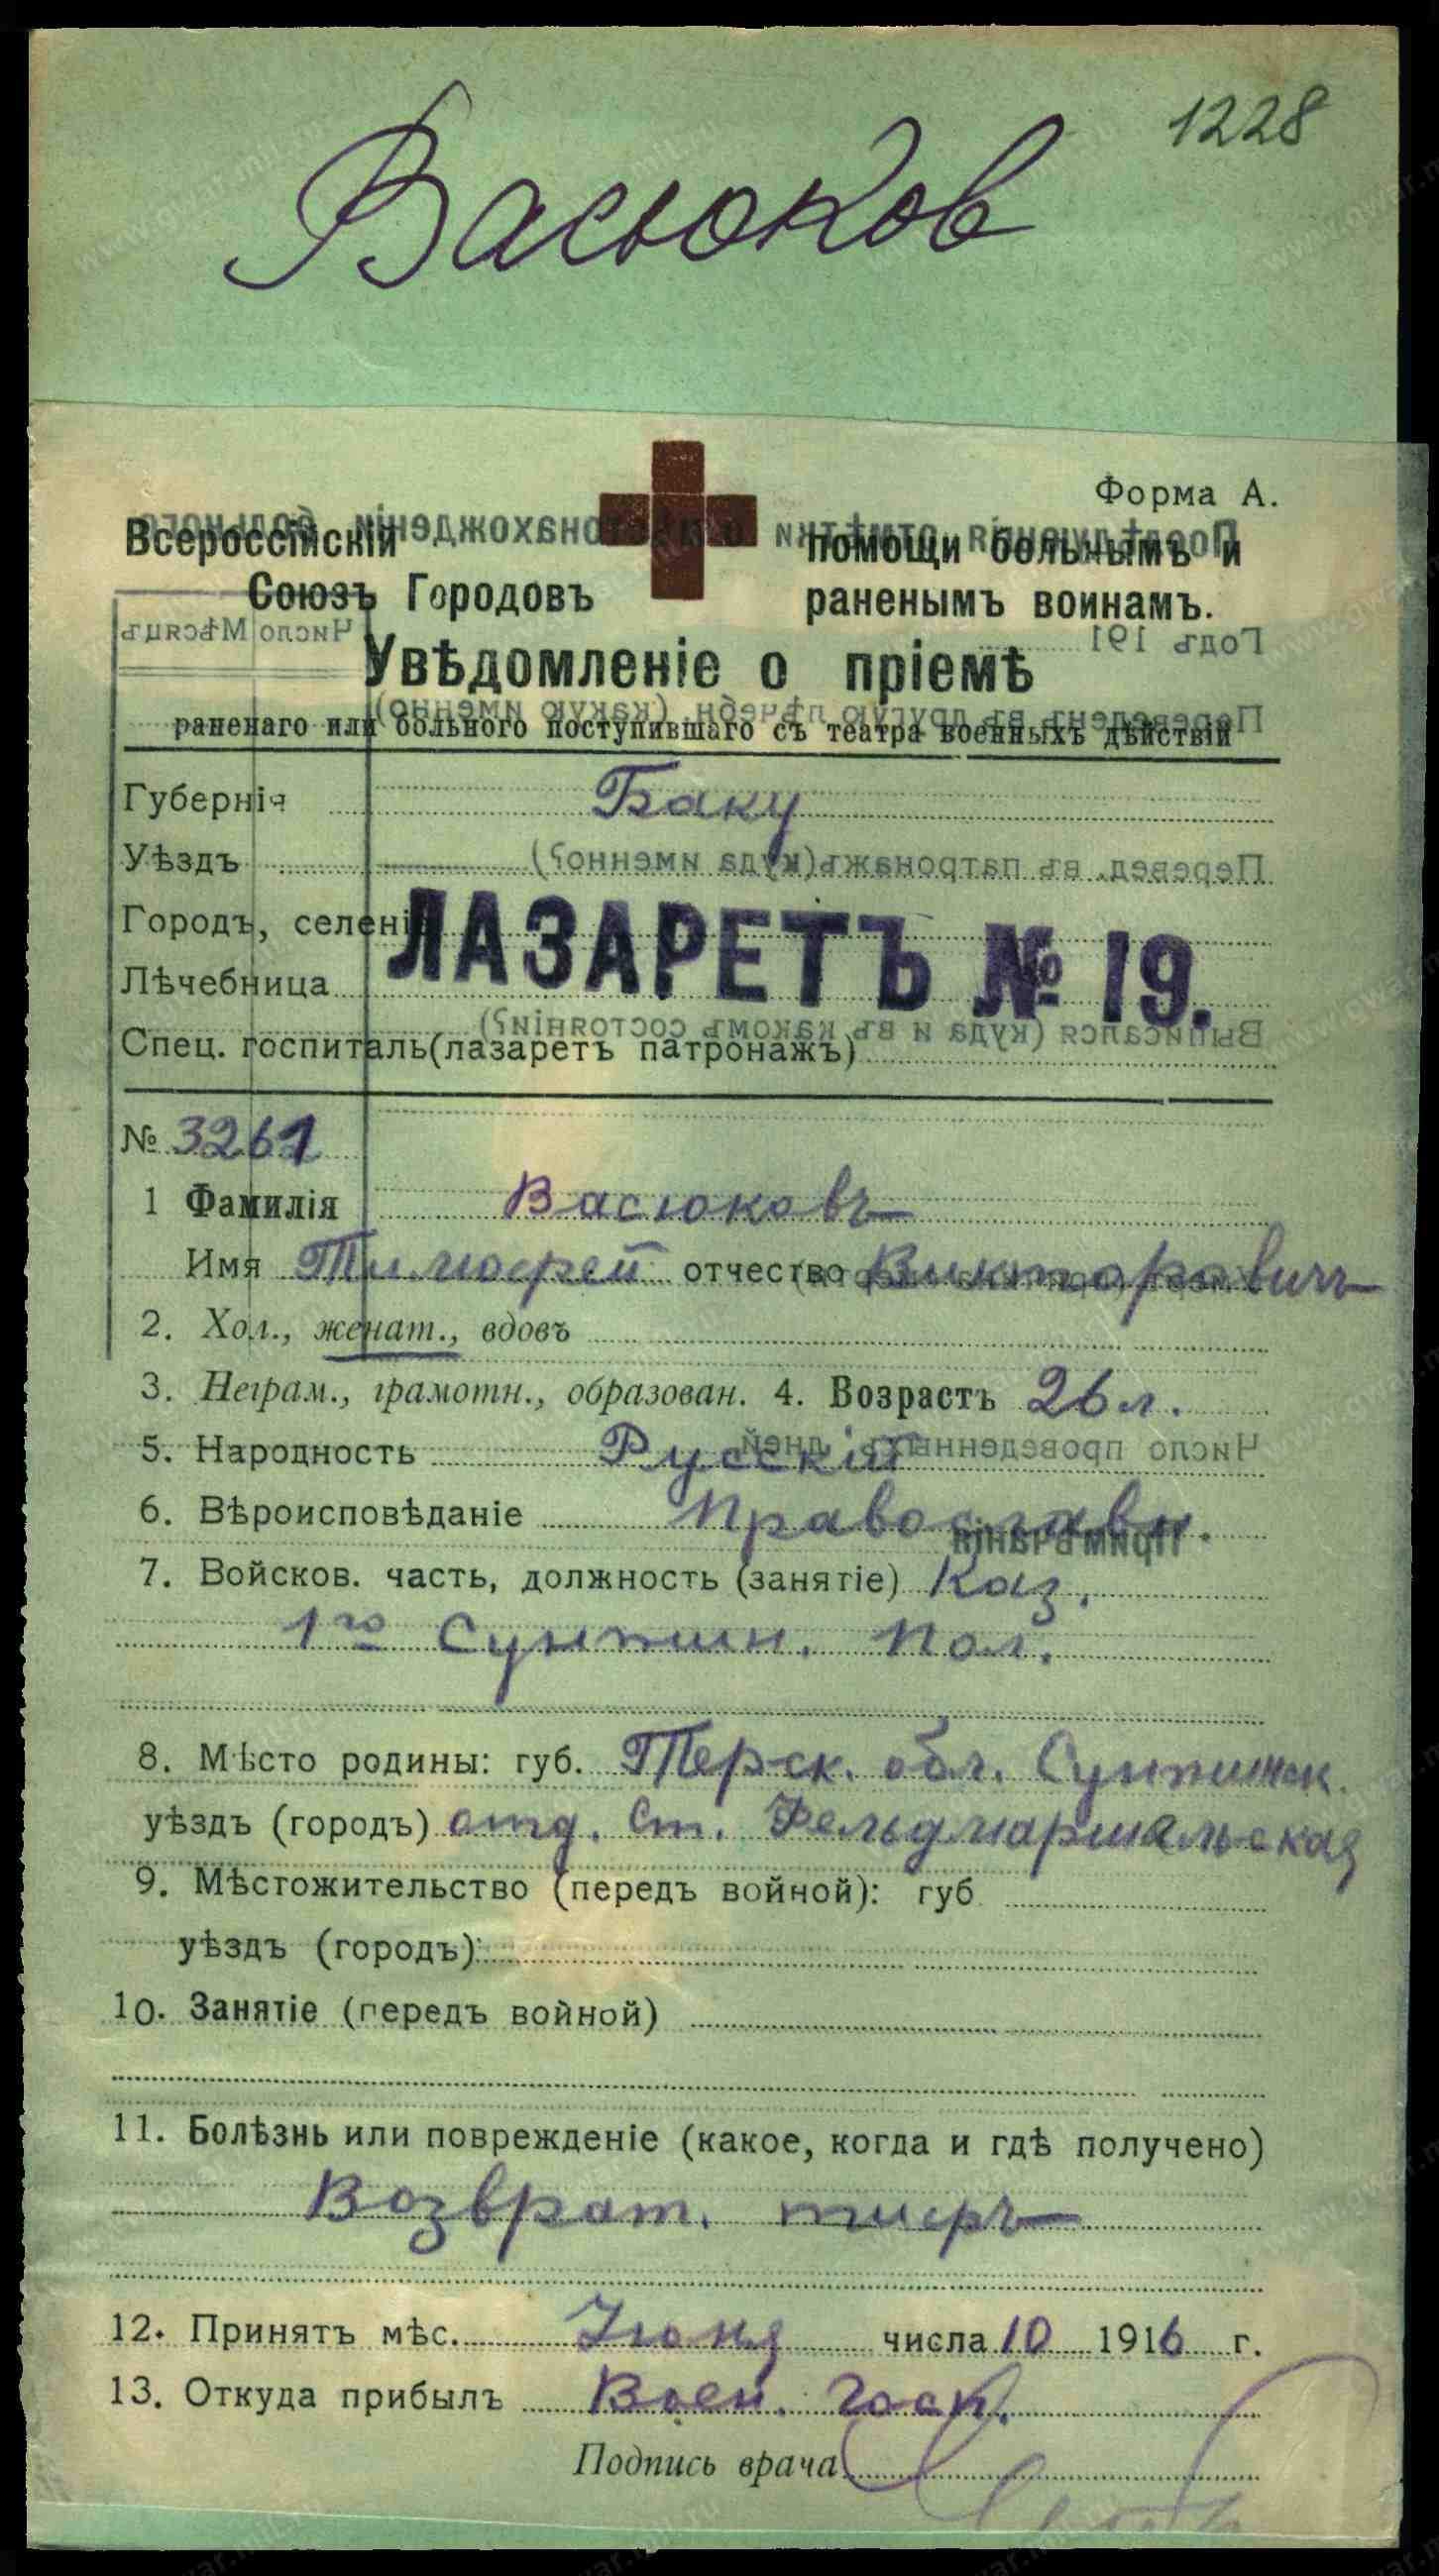 1228
Васюков
Форма А.
Всероссійскій помощи больнымъ и
Союзъ Городовъ раненымъ воинамъ.
Увѣдомленіе о пріемѣ
раненаго или больного поступившаго съ театра военныхъ дѣйствій
Губернія Баку
Уѣздъ
Городъ, селеніе
Лѣчебница ЛАЗАРЕТЪ № 19.
Спец. госпиталь(лазаретъ патронажъ)
№ 3261
1 Фамилія Васюковъ
Имя Тимофей отчество Викторовичъ
2. Хол., женат., вдовъ
3. Неграм., грамотн., образован. 4. Возрастъ 26 л.
5. Народность Русскій
6. Вѣроисповѣданіе Православн.
7. Войсков. часть, должность (занятіе) Каз.
1го Сунжин. Пол.
8. Мѣсто родины: губ. Терск. обл. Сунженск.
уѣздъ (городъ) отд. Ст. Фельдмаршальская
9. Мѣстожительство (передъ войной): губ.
уѣздъ (городъ):
10. Занятіе (передъ войной)
11. Болѣзнь или поврежденіе (какое, когда и гдѣ получено)
Возврат. тифъ
12. Принятъ мѣс. Іюня числа 10 1916 г.
13. Откуда прибылъ Воен. госп.
Подпись врача